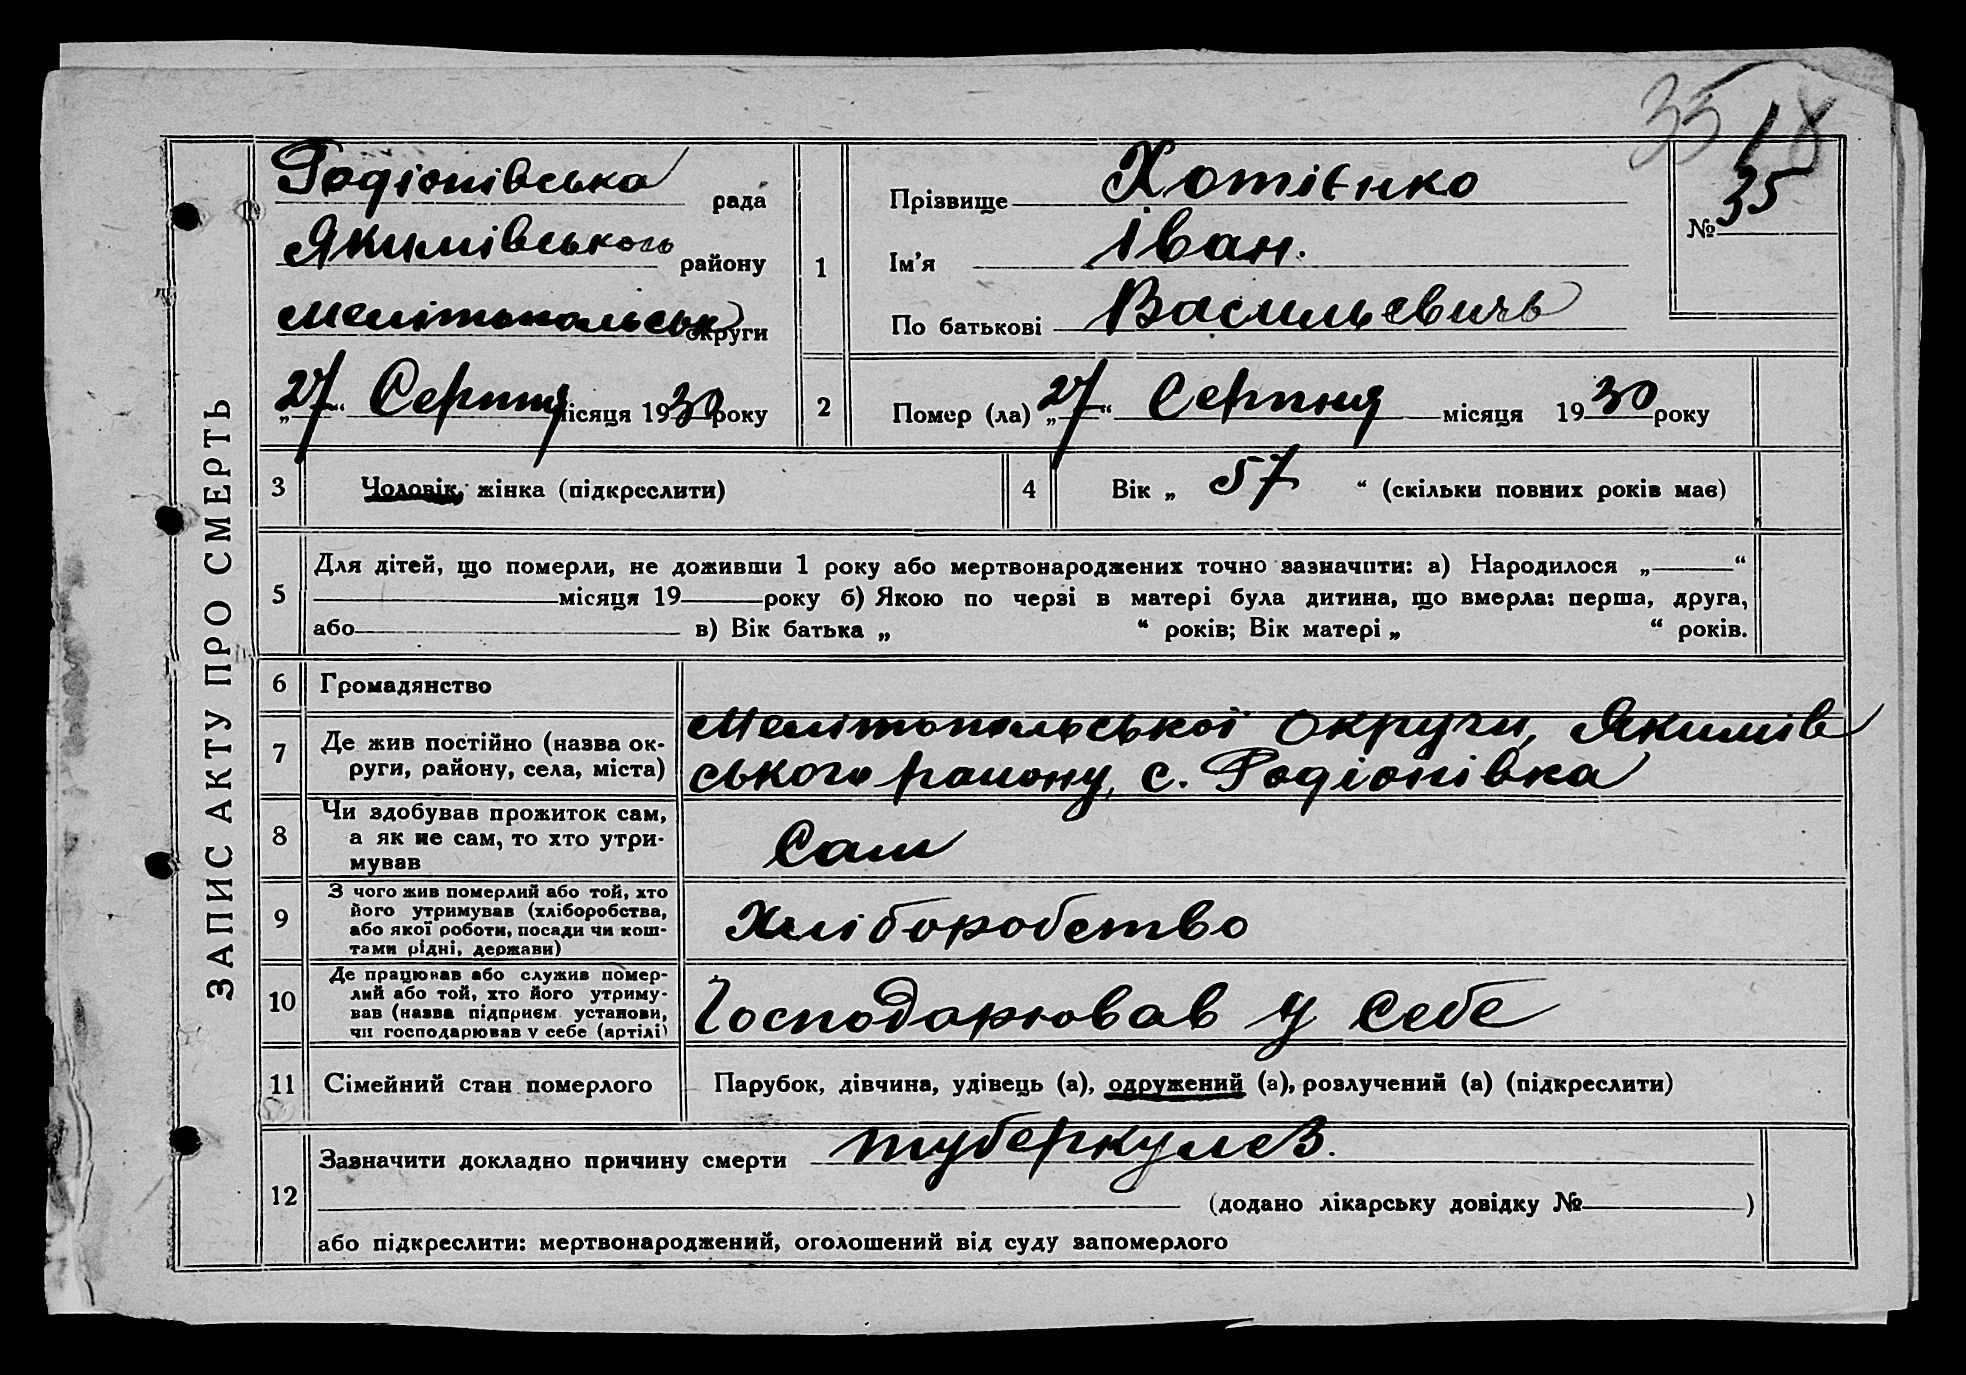 35 18
ЗАПИС АКТУ ПРО СМЕРТЬ
Родіонівська рада
Якимівського району
Мелітопольськ округи
„27“ Серпня місяця 1930 року
1
Прізвище Хотієнко
Ім'я Іван.
По батькові Васильевичь
№ 35
2
Помер (ла) „27“ Серпня місяця 1930 року
3 Чоловік, жінка (підкреслити)
4 Вік „ 57 “ (скільки повних років має)
5
Для дітей, що померли, не доживши 1 року або мертвонароджених точно зазначити: а) Народилося „ “
місяця 19 року б) Якою по черзі в матері була дитина, що вмерла: перша, друга,
або в) Вік батька „ “ років; Вік матері „ “ років.
6 Громадянство
7 Де жив постійно (назва ок-
руги, району, села, міста)
Мелітопольської Округи, Якимів
ського району, с. Родіонівка
8
Чи здобував прожиток сам,
а як не сам, то хто утри-
мував
Сам
9
З чого жив померлий або той, хто
його утримував (хліборобства,
або якої роботи, посади чи кош-
тами рідні, держави)
Хліборобство
10
Де працював або служив помер-
лий або той, хто його утриму-
вав (назва підприєм. установи,
чи господарював у себе (артілі)
Господарював у себе
11 Сімейний стан померлого
Парубок, дівчина, удівець (а), одружений (а), розлучений (а) (підкреслити)
12
Зазначити докладно причину смерти туберкулез.
(додано лікарську довідку № )
або підкреслити: мертвонароджений, оголошений від суду запомерлого